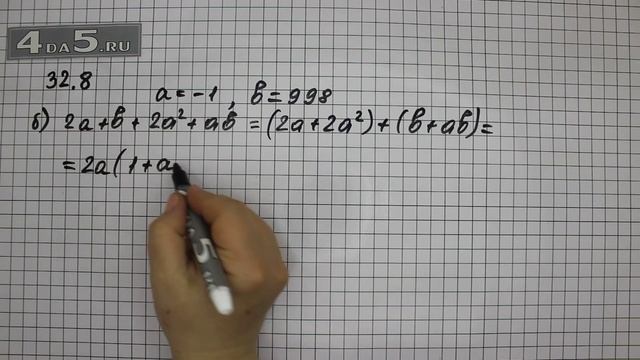 4DA5.RU
32.8
a = -1, b = 998
б) 2a + b + 2a² + ab = (2a + 2a²) + (b + ab) =
= 2a(1 + a